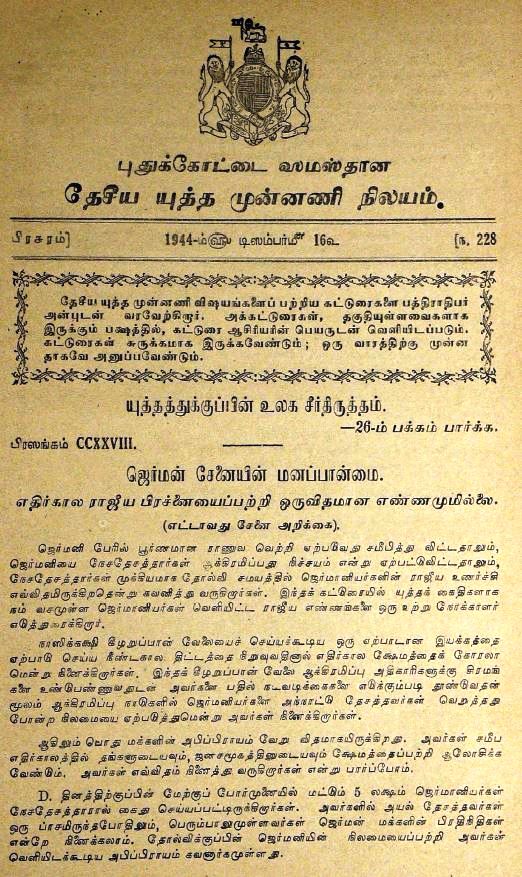 புதுக்கோட்டை ஸமஸ்தான
தேசீய யுத்த முன்னணி நிலயம்.
பிரசுரம்] 1944-ம்௵ டிஸம்பர்௴ 16௳ [ந. 228
தேசீய யுத்த முன்னணி விஷயங்களைப் பற்றிய கட்டுரைகளை பத்திராதிபர்
அன்புடன் வரவேற்கிறார். அக்கட்டுரைகள், தகுதியுள்ளவைகளாக
இருக்கும் பக்ஷத்தில், கட்டுரை ஆசிரியரின் பெயருடன் வெளியிடப்படும்.
கட்டுரைகள் சுருக்கமாக இருக்கவேண்டும்; ஒரு வாரத்திற்கு முன்ன
தாகவே அனுப்பவேண்டும்.
யுத்தத்துக்குப்பின் உலக சீர்திருத்தம்.
—26-ம் பக்கம் பார்க்க.
பிரஸங்கம் CCXXVIII.
ஜெர்மன் சேனையின் மனப்பான்மை.
எதிர்கால ராஜீய பிரச்னையைப்பற்றி ஒருவிதமான எண்ணமுமில்லை.
(எட்டாவது சேனை அறிக்கை).
ஜெர்மனி பேரில் பூர்ணமான ராணுவ வெற்றி ஏற்படுவது சமீபித்து விட்டதாலும்,
ஜெர்மனியை நேசதேசத்தார்கள் ஆக்கிரமிப்பது நிச்சயம் என்று ஏற்பட்டுவிட்டதாலும்,
நேசதேசத்தார்கள் முக்கியமாக தோல்வி சமயத்தில் ஜெர்மானியர்களின் ராஜீய உணர்ச்சி
எவ்விதமிருக்கிறதென்று கவனித்து வருகிறார்கள். இந்தக் கட்டுரையில் யுத்தக் கைதிகளாக
நம் வசமுள்ள ஜெர்மானியர்கள் வெளியிட்ட ராஜீய எண்ணங்களை ஒரு உற்று நோக்காளர்
எடுத்துரைக்கிறார்.
நாஸிக்கக்ஷி கீழறுப்பான் வேலையைச் செய்யக்கூடிய ஒரு ஏற்பாடான இயக்கத்தை
ஏற்பாடு செய்ய நீண்டகால திட்டத்தை நிறுவுவதினால் எதிர்கால க்ஷேமத்தைக் கோரலா
மென்று நினைக்கிறார்கள். இந்தக் கீழறுப்பான் வேலை ஆக்கிரமிப்பு அதிகாரிகளுக்கு சிரமங்
களை உண்பெண்ணுவதுடன் அவர்களை பதில் நடவடிக்கைகளை எடுக்கும்படி தூண்டுவதன்
மூலம் ஆக்கிரமிப்பு நாடுகளில் ஜெர்மானியர்களை அந்நாட்டு தேசத்தவர்கள் வெறுத்தது
போன்ற நிலமையை ஏற்படுத்துமென்று அவர்கள் நினைக்கிறார்கள்.
ஆயினும் பொது மக்களின் அபிப்பிராயம் வேறு விதமாகயிருக்கிறது. அவர்கள் சமீப
எதிர்காலத்தில் தங்களுடையவும், ஜனசமூகத்தினுடையவும் க்ஷேமத்தைப்பற்றி ஆலோசிக்க
வேண்டும். அவர்கள் எவ்விதம் நினைத்து வருகிறார்கள் என்று பார்ப்போம்.
D. தினத்திற்குப்பின் மேற்குப் போர்முனையில் மட்டும் 5 லக்ஷம் ஜெர்மானியர்கள்
நேசதேசத்தாரால் கைது செய்யப்பட்டிருக்கிறார்கள். அவர்களில் அயல் தேசத்தவர்கள்
ஒரு பிரசமிருந்தபோதிலும், பெரும்பாலுமுள்ளவர்கள் ஜெர்மன் மக்களின் பிரதிநிதிகள்
என்றே நினைக்கலாம். தோல்விக்குப்பின் ஜெர்மனியின் நிலமையைப்பற்றி அவர்கள்
வெளியிடக்கூடிய அபிப்பிராயம் கவனார்கமுள்ளது.